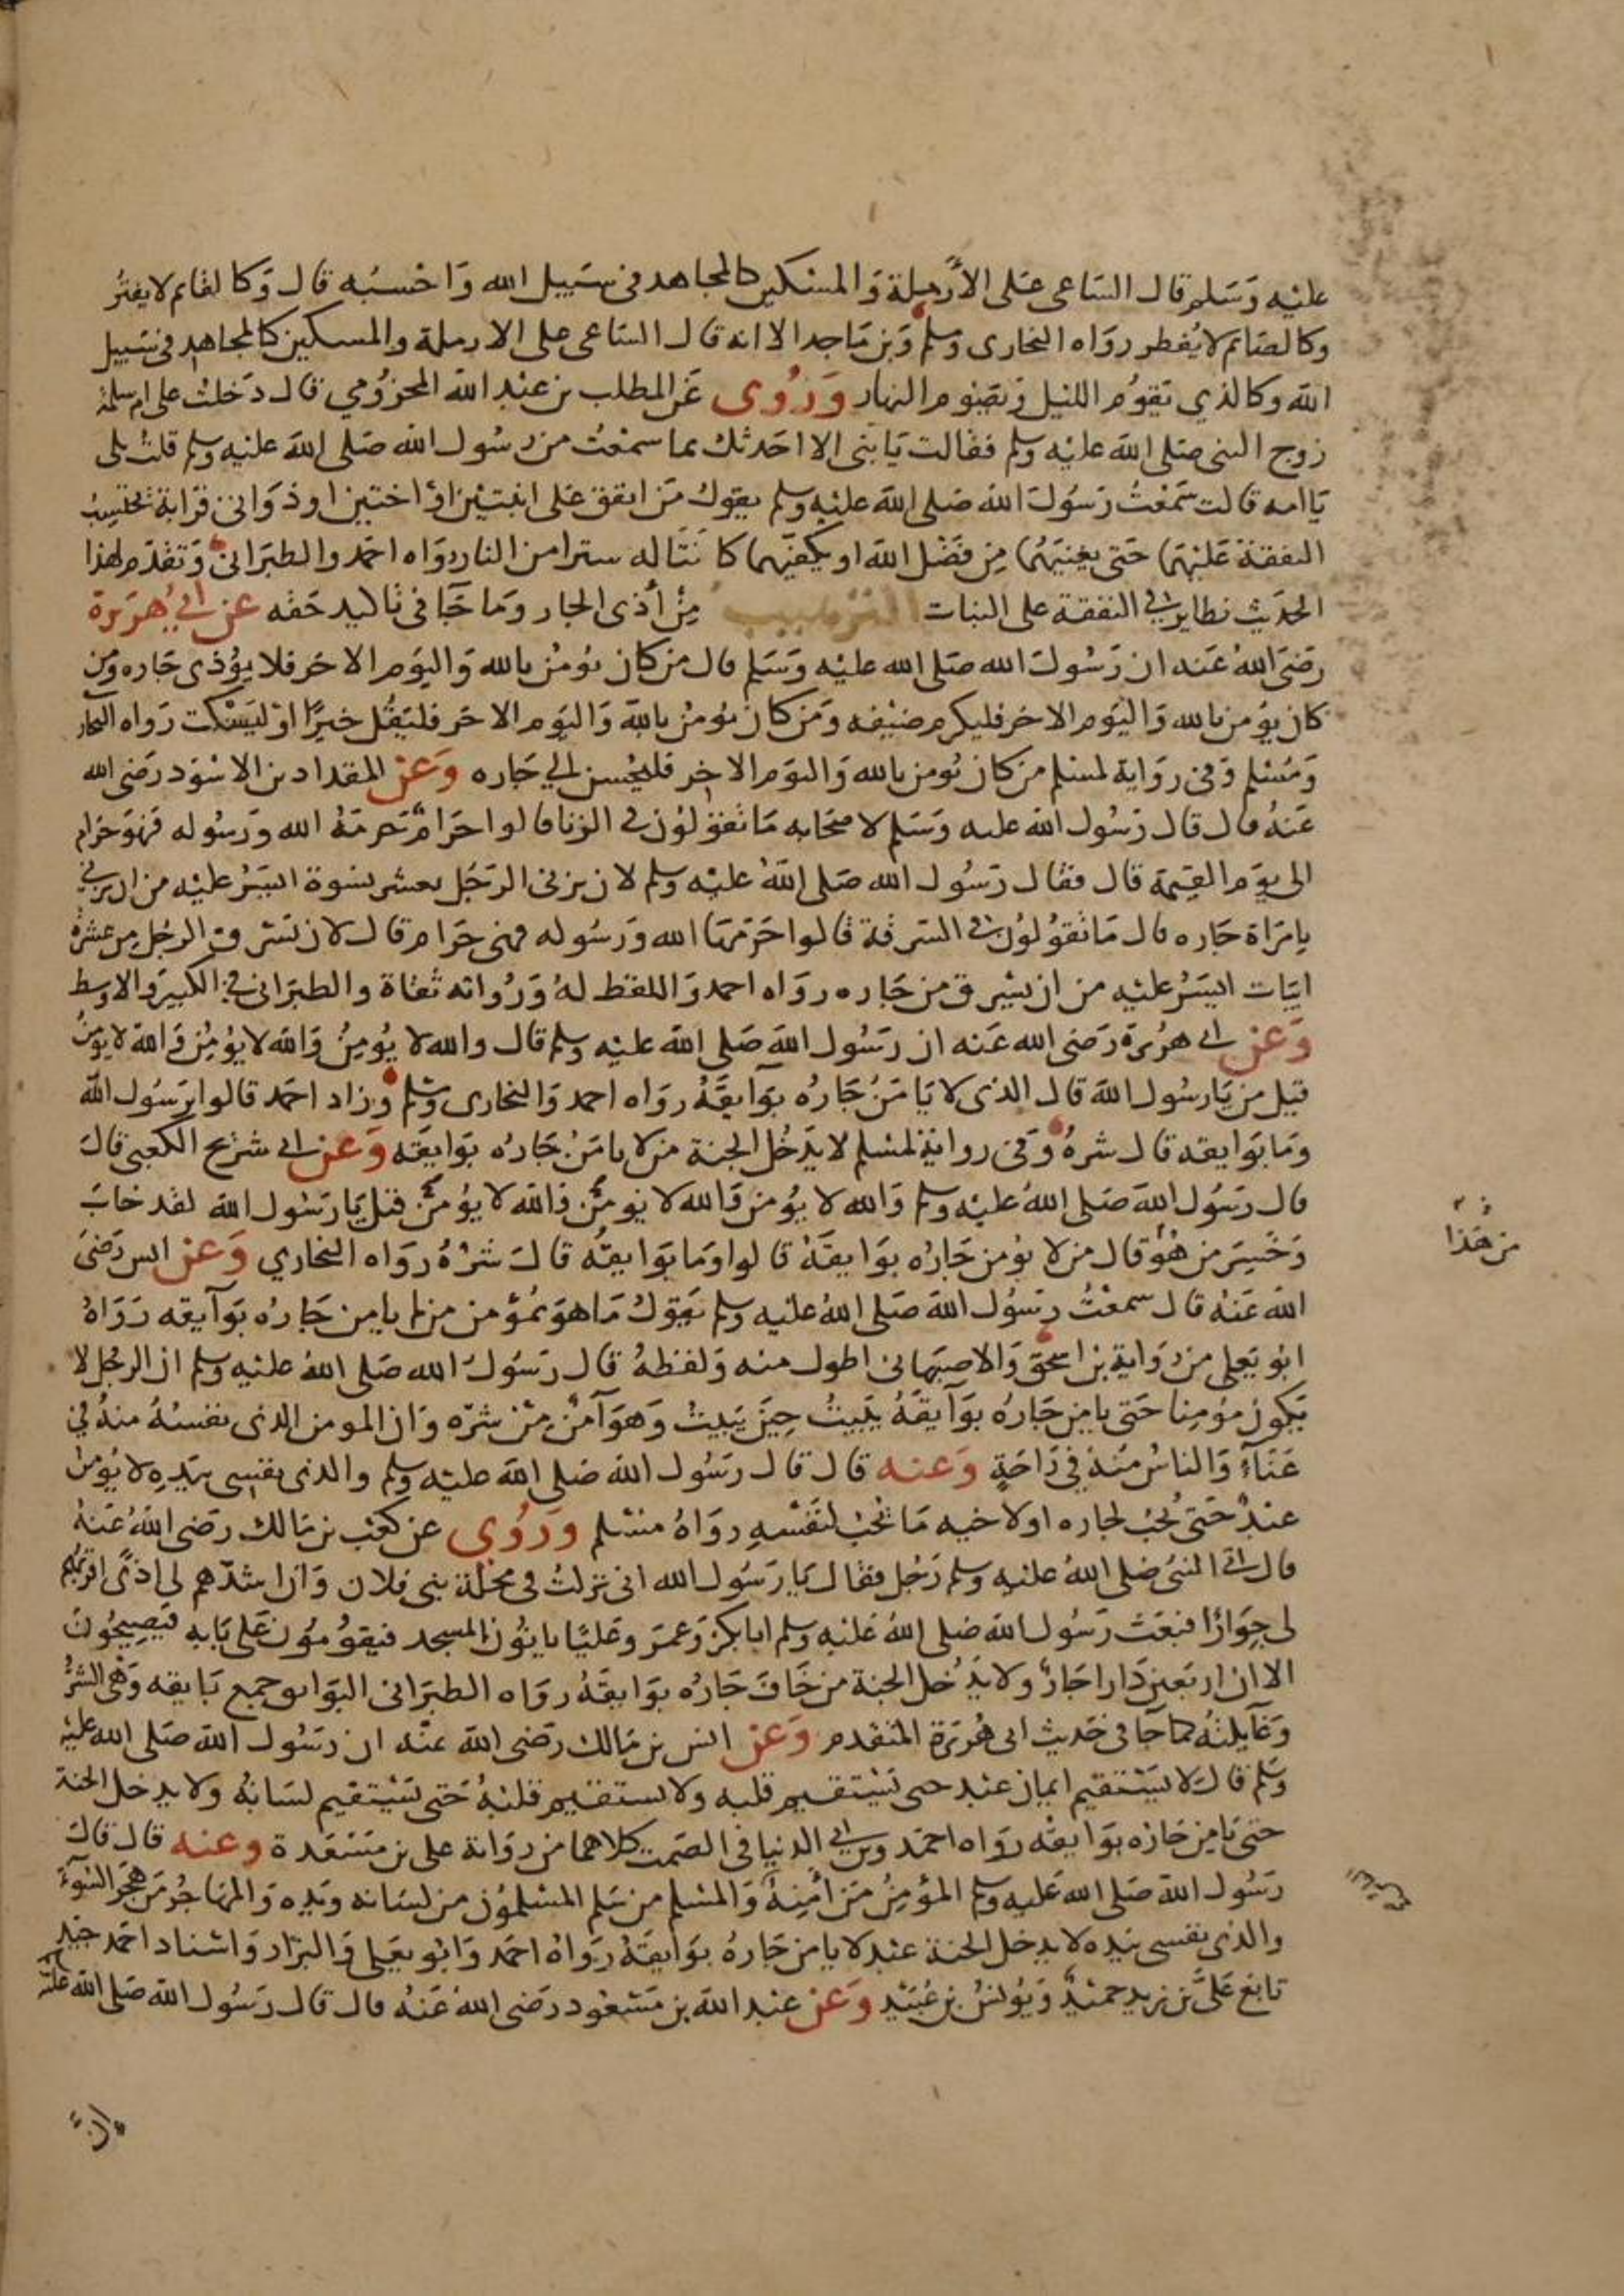 عليه وسلم قال الساعى على الأرملة والمسكين كالمجاهد فى سبيل الله واحسبه قال وكالقايم لا يفتر
وكالصايم لا يفطر رواه البخارى ومسلم وبن ماجه الا انه قال الساعى على الارملة والمسكين كالمجاهد فى سبيل
الله وكالذي يقوم الليل ويصوم النهار وروى عن المطلب بن عبد الله المخزومي قال دخلت على ام سلمة
زوج النبى صلى الله عليه وسلم فقالت يا بنى الا احدثك بما سمعت من رسول الله صلى الله عليه وسلم قلت بلى
يا امه قالت سمعت رسول الله صلى الله عليه وسلم يقول من انفق على ابنتين او اختين او ذواتى قرابة يحتسب
النفقة عليهما حتى يغنيهما من فضل الله او يكفيهما كانتا له سترا من النار رواه احمد والطبرانى وتقدم لهذا
الحديث نظاير فى النفقة على البنات الترهيب من أذى الجار وما جا فى تاكيد حقه عن ابي هريرة
رضى الله عنه ان رسول الله صلى الله عليه وسلم قال من كان يومن بالله واليوم الاخر فلا يؤذى جاره ومن
كان يؤمن بالله واليوم الاخر فليكرم ضيفه ومن كان يومن بالله واليوم الاخر فليقل خيرا او ليسكت رواه البخار
ومسلم وفى رواية لمسلم من كان يومن بالله واليوم الاخر فليحسن الي جاره وعن المقداد بن الاسود رضى الله
عنه قال قال رسول الله عليه وسلم لاصحابه ما تقولون فى الزنا قالوا حرام حرمه الله ورسوله فهو حرام
الى يوم القيمة قال فقال رسول الله صلى الله عليه وسلم لان يزنى الرجل بعشر نسوة ايسر عليه من ان يزني
بامراة جاره قال ما تقولون فى السرقة قالوا حرمها الله ورسوله فهى حرام قال لان يسرق الرجل من عشرة
ابيات ايسر عليه من ان يسرق من جاره رواه احمد واللفظ له ورواته ثقاة والطبرانى فى الكبير والاوسط
وعن ابى هريرة رضى الله عنه ان رسول الله صلى الله عليه وسلم قال والله لا يؤمن والله لا يؤمن والله لا يومن
قيل من يا رسول الله قال الذى لا يامن جاره بوايقه رواه احمد والبخارى ومسلم وزاد احمد قالوا يرسول الله
وما بوايقه قال شره وفى رواية لمسلم لا يدخل الجنة من لا يامن جاره بوايقه وعن ابى شريح الكعبى قال
قال رسول الله صلى الله عليه وسلم والله لا يؤمن والله لا يومن والله لا يؤمن قيل يا رسول الله لقد خاب
وخسر من هو قال من لا يومن جاره بوايقه قالوا وما بوايقه قال شره رواه البخاري وعن انس رضى
من هذا
الله عنه قال سمعت رسول الله صلى الله عليه وسلم يقول ما هو بمؤمن من لم يامن جاره بوآيقه رواه
ابو يعلى من رواية بن اسحق والاصبهانى اطول منه ولفظه قال رسول الله صلى الله عليه وسلم ان الرجل لا
يكون مؤمنا حتى يامن جاره بوآيقه يبيت حين يبيت وهو آمن من شره وان المومن الذى نفسه منه في
عناء والناس منه في راحة وعنه قال قال رسول الله صلى الله عليه وسلم والذى نفسى بيده لا يؤمن
عبد حتى يحب لجاره او لاخيه ما يحب لنفسه رواه مسلم وروى عن كعب بن مالك رضى الله عنه
قال اتى النبى صلى الله عليه وسلم رجل فقال يا رسول الله انى نزلت فى محلة بنى فلان وان اشدهم لى اذى اقربهم
لى جوارا فبعث رسول الله صلى الله عليه وسلم ابا بكر وعمر وعليا ياتون المسجد فيقومون على بابه فيصيحون
الا ان اربعين دارا جار ولا يدخل الجنة من خاف جاره بوايقه رواه الطبرانى البوايق جمع بايقه وهى الشر
وغايلته كما جا فى حديث ابى هريرة المتقدم وعن انس بن مالك رضى الله عنه ان رسول الله صلى الله عليه
وسلم قال لا يستقيم ايمان عبد حتى يستقيم قلبه ولا يستقيم قلبه حتى يستقيم لسانه ولا يدخل الجنة
حتى يامن جاره بوايقه رواه احمد وبن ابي الدنيا فى الصمت كلاهما من رواية على بن مسعدة وعنه قال قال
رسول الله صلى الله عليه وسلم المؤمن من أمنه والمسلم من سلم المسلمون من لسانه ويده والمهاجر من هجر السوء
والذى نفسى بيده لا يدخل الجنة عبد لا يامن جاره بوايقه رواه احمد وابو يعلى والبزار واسناد احمد جيد
تابع على بن زيد حميد ويونس بن عبيد وعن عبد الله بن مسعود رضى الله عنه قال قال رسول الله صلى الله عليه
ان